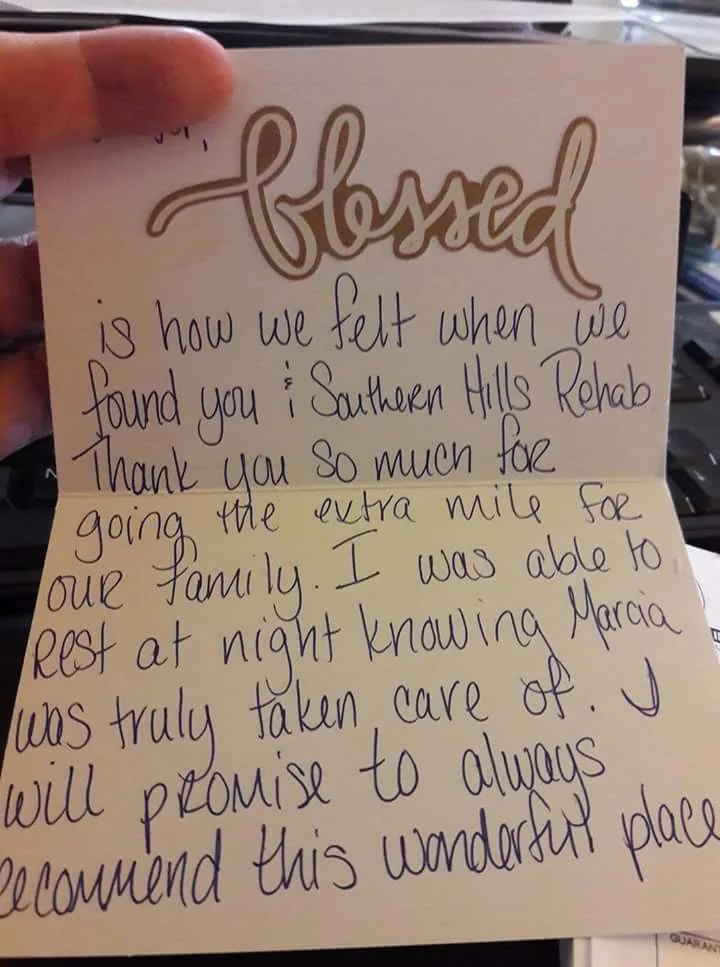 blessed
is how we felt when we
found you & Southern Hills Rehab
Thank you so much for
going the extra mile for
our family. I was able to
rest at night knowing Marcia
was truly taken care of. I
will promise to always
recommend this wonderful place
GUARAN